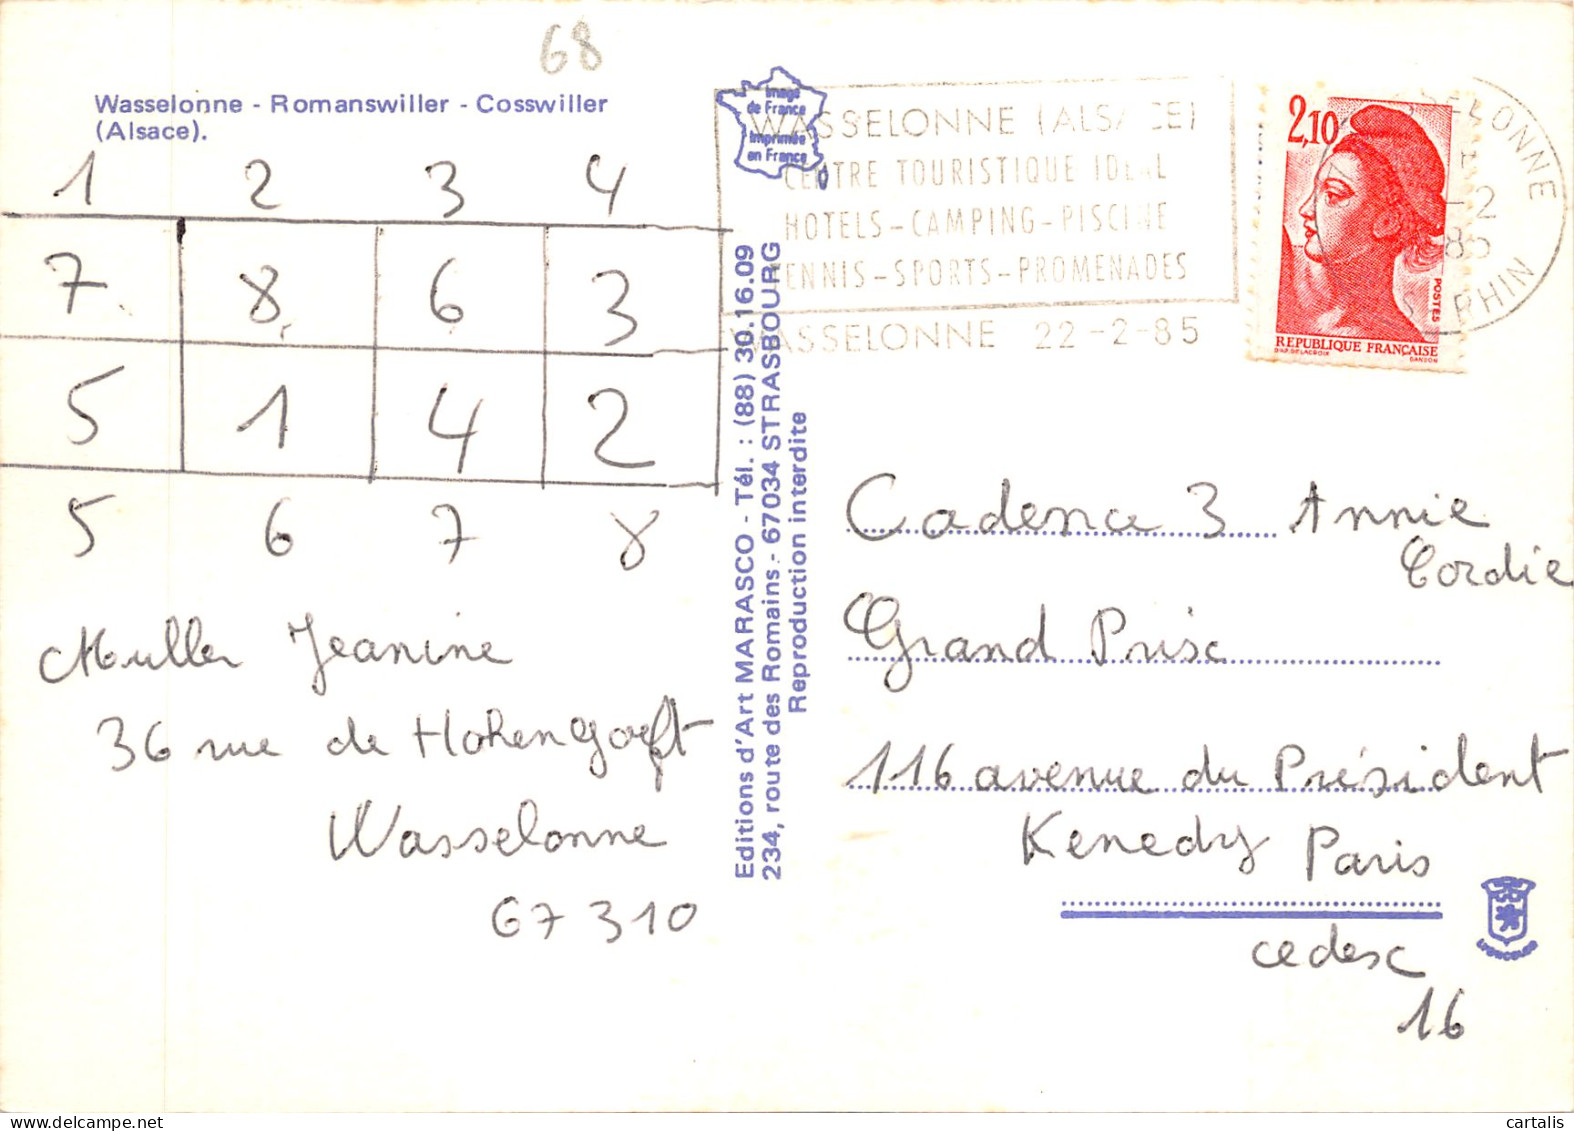 68
Wasselonne - Romanswiller - Cosswiller
(Alsace).
1 2 3 4
7 8 6 3
5 1 4 2
5 6 7 8
Muller Jeanine
36 rue de Hohengoeft
Wasselonne
67310
Image
de France
Imprimée
en France
Editions d'Art MARASCO - Tél. : (88) 30.16.09
234, route des Romains - 67034 STRASBOURG
Reproduction interdite
WASSELONNE (ALSACE)
CENTRE TOURISTIQUE IDEAL
HOTELS - CAMPING - PISCINE
TENNIS - SPORTS - PROMENADES
WASSELONNE 22 -2-85
2,10
POSTES
REPUBLIQUE FRANÇAISE
D'AP. DELACROIX GANDON
-2
85
RHIN
Cadence 3 Annie
Cordie
Grand Prix
116 avenue du Président
Kenedy Paris
cedex
16
LYONCOLOR
cartalis